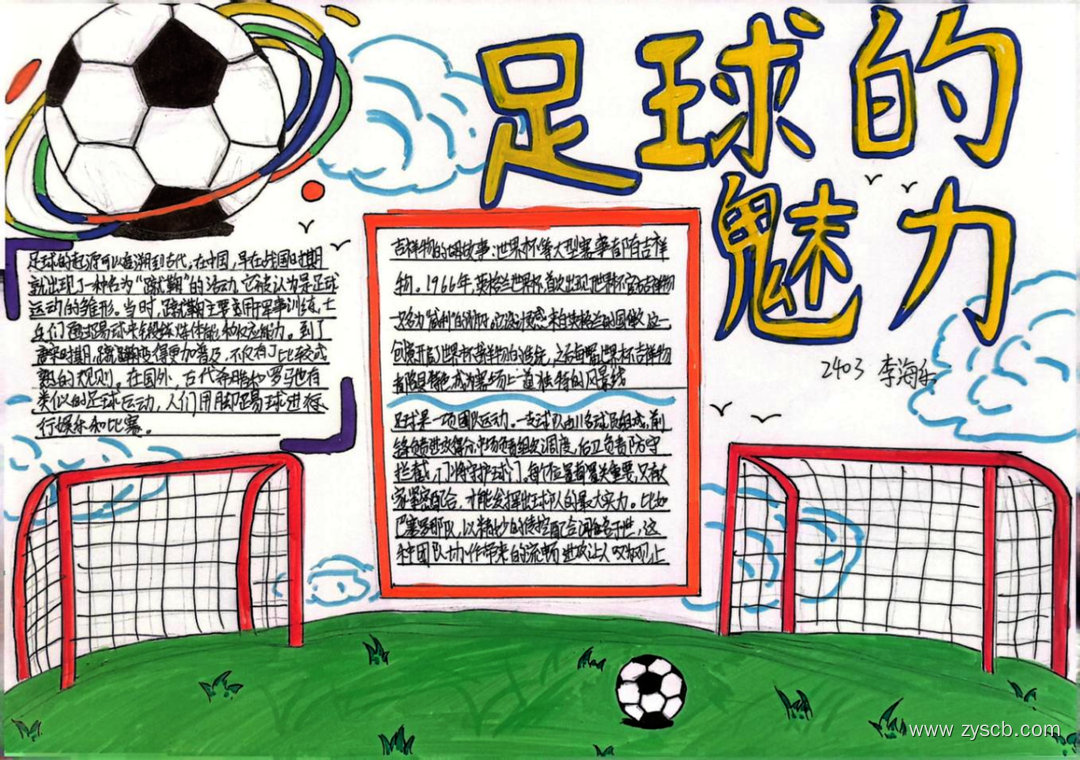 足球的
魅力
2403 李海
足球的起源可以追溯到古代,在中国,早在战国时期
就出现了一种名为“蹴鞠”的活动,它被认为是足球
运动的雏形。当时,蹴鞠主要用于军事训练,士
兵们通过踢球来锻炼体能和反应能力。到了
唐宋时期,蹴鞠变得更加普及,不仅有了比较成
熟的规则。在国外,古代希腊和罗马也有
类似的足球运动,人们用脚踢球进行
行娱乐和比赛。
吉祥物的故事:世界杯等大型赛事都有吉祥
物。1966年,英格兰世界杯首次出现世界杯吉祥物
一只名为“威利”的狮子,它的灵感来自英格兰的国徽,这一
创意开启了世界杯吉祥物的传统,之后每届世界杯吉祥物
成为赛场上一道独特的风景线
足球是一项团队运动。一支球队由11名球员组成,前
锋负责进攻得分,中场负责组织调度,后卫负责防守
拦截,门将守护球门。每个位置都至关重要,只有大
家紧密配合,才能发挥出球队的最大实力。比如
巴塞罗那队,以精妙的传控配合闻名于世,这
种团队协作带来的流畅进攻让人叹为观止
www.zyscb.com